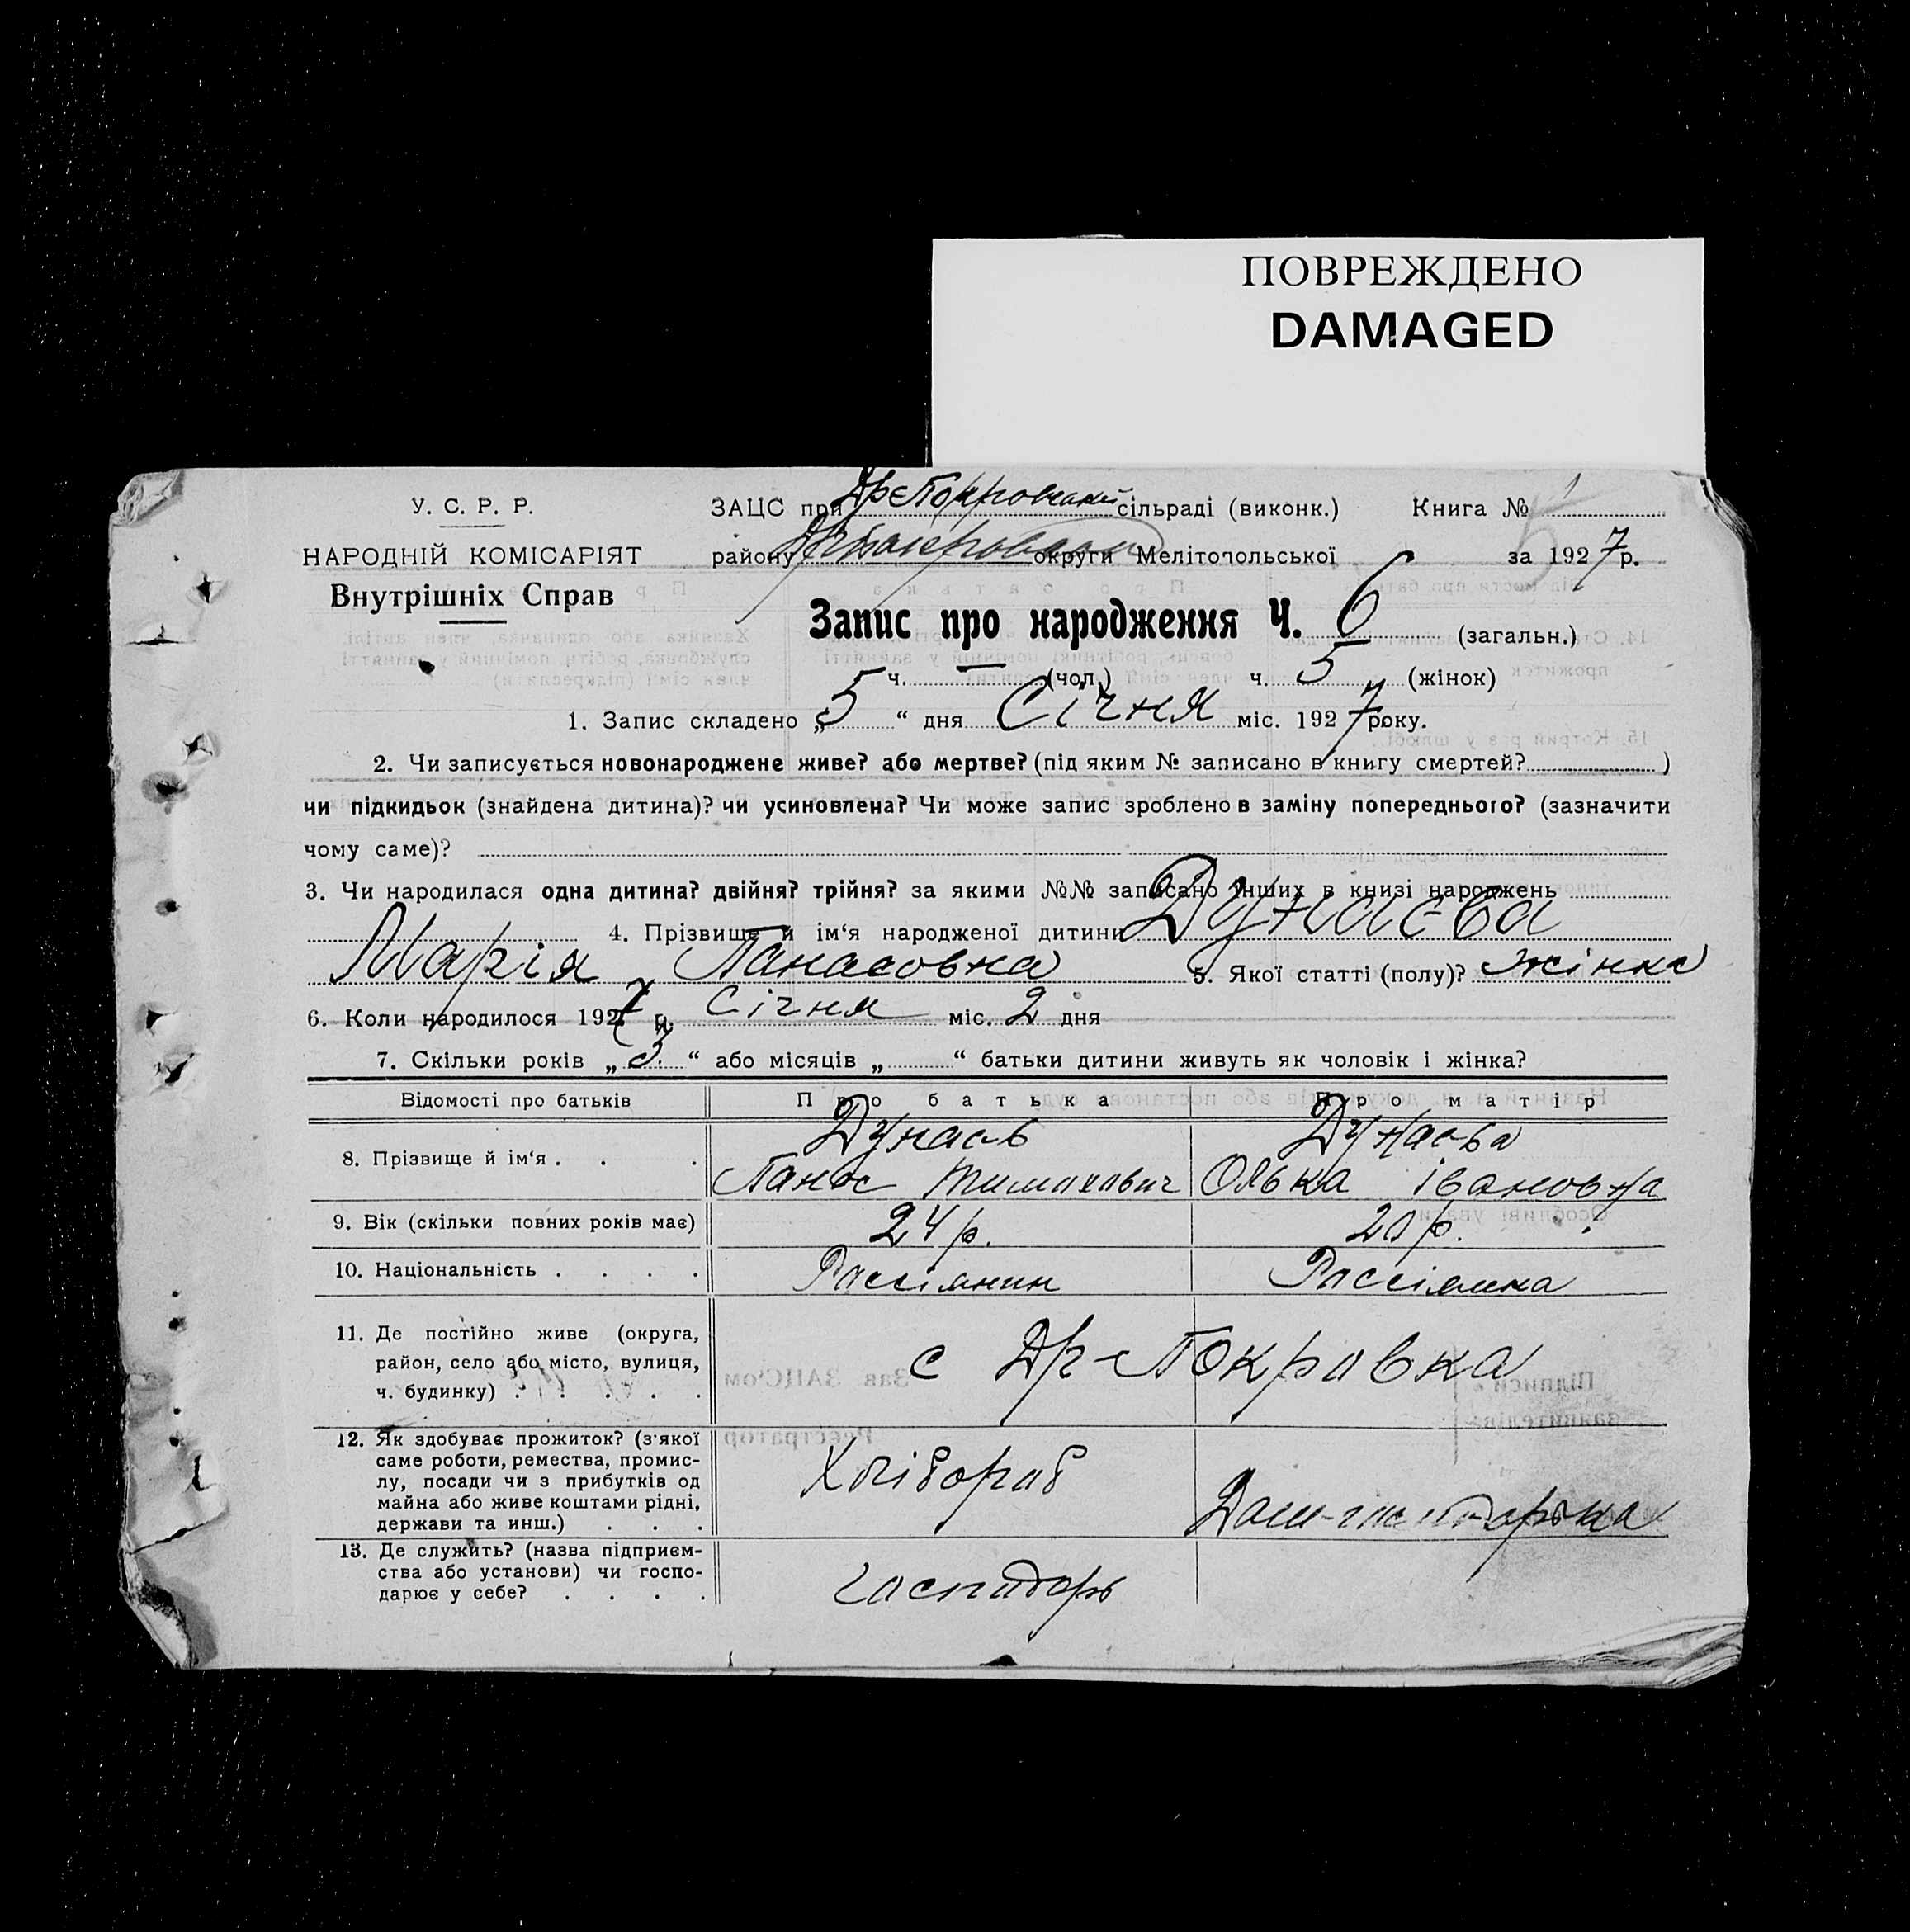 ПОВРЕЖДЕНО
DAMAGED
У. С. Р. Р.
НАРОДНІЙ КОМІСАРІЯТ
Внутрішніх Справ
ЗАЦС при сільраді (виконк.) Книга № 1
району округи Мелітопольської за 1927 р.
Запис про народження Ч. 6 (загальн.)
ч. — (чол.) ч. 5 (жінок)
1. Запис складено „5“ дня Січня міс. 1927 року.
2. Чи записується новонароджене живе? або мертве? (під яким № записано в книгу смертей? )
чи підкидьок (знайдена дитина)? чи усиновлена? Чи може запис зроблено в заміну попереднього? (зазначити
чому саме)?
3. Чи народилася одна дитина? двійня? трійня? за якими №№ записано інших в книзі нарожжень
4. Прізвище й ім‘я народженої дитини Дунаєва
Марія Панасовна 5. Якої статті (полу)? жінка
6. Коли народилося 1927 р. Січня міс. 2 дня
7. Скільки років „3“ або місяців „ “ батьки дитини живуть як чоловік і жінка?
Відомості про батьків Про батька Про матір
8. Прізвище й ім‘я . . . Дунаєв Дунаєва
Панас Олька Івановна
9. Вік (скільки повних років має) 24 р. 20 р.
10. Національність . . . . Россіянин Россіянка
11. Де постійно живе (округа,
район, село або місто, вулиця,
ч. будинку) . . . . . с Др-Покровка
12. Як здобуває прожиток? (з‘якої
саме роботи, ремества, промис-
лу, посади чи з прибутків од
майна або живе коштами рідні,
держави та инш.) . . . Хлібороб Дом-господарька
13. Де служить? (назва підприєм-
ства або установи) чи госпо-
дарює у себе? . . . . господарь